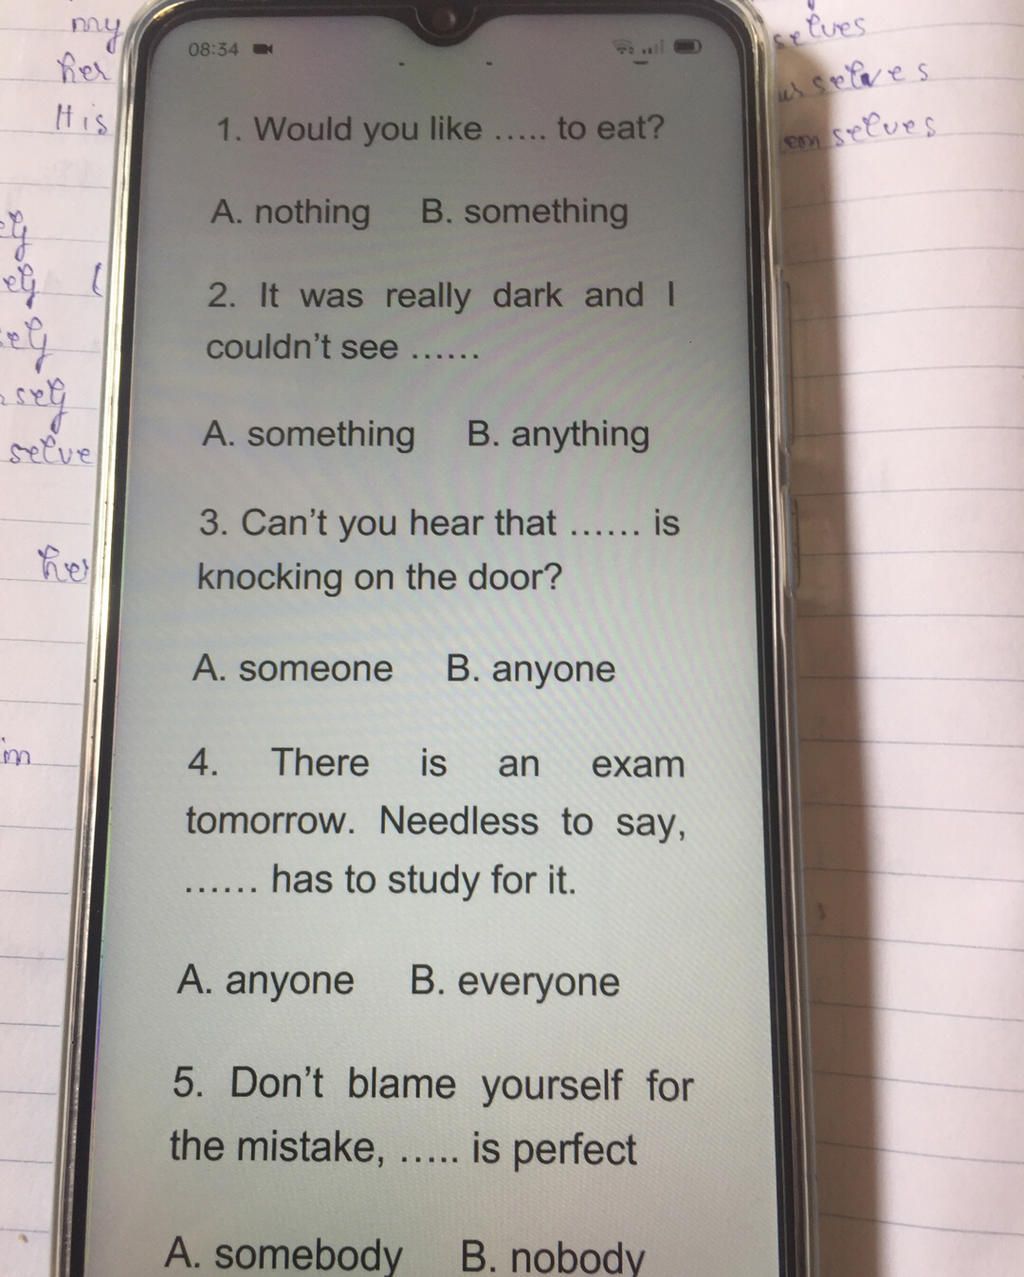 my
her
His
selves
us selves
em selves
08:34
1. Would you like ..... to eat?
A. nothing B. something
2. It was really dark and I
couldn't see ......
A. something B. anything
3. Can't you hear that ...... is
knocking on the door?
A. someone B. anyone
4. There is an exam
tomorrow. Needless to say,
...... has to study for it.
A. anyone B. everyone
5. Don't blame yourself for
the mistake, ..... is perfect
A. somebody B. nobody
selve
her